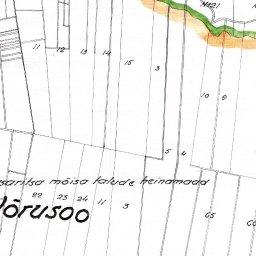 №21
11 12 13 14 15 3
10 9
5 4
saritsa mõisa talude heinamaad
22 23 24 11 3
Võrusoo
65
60